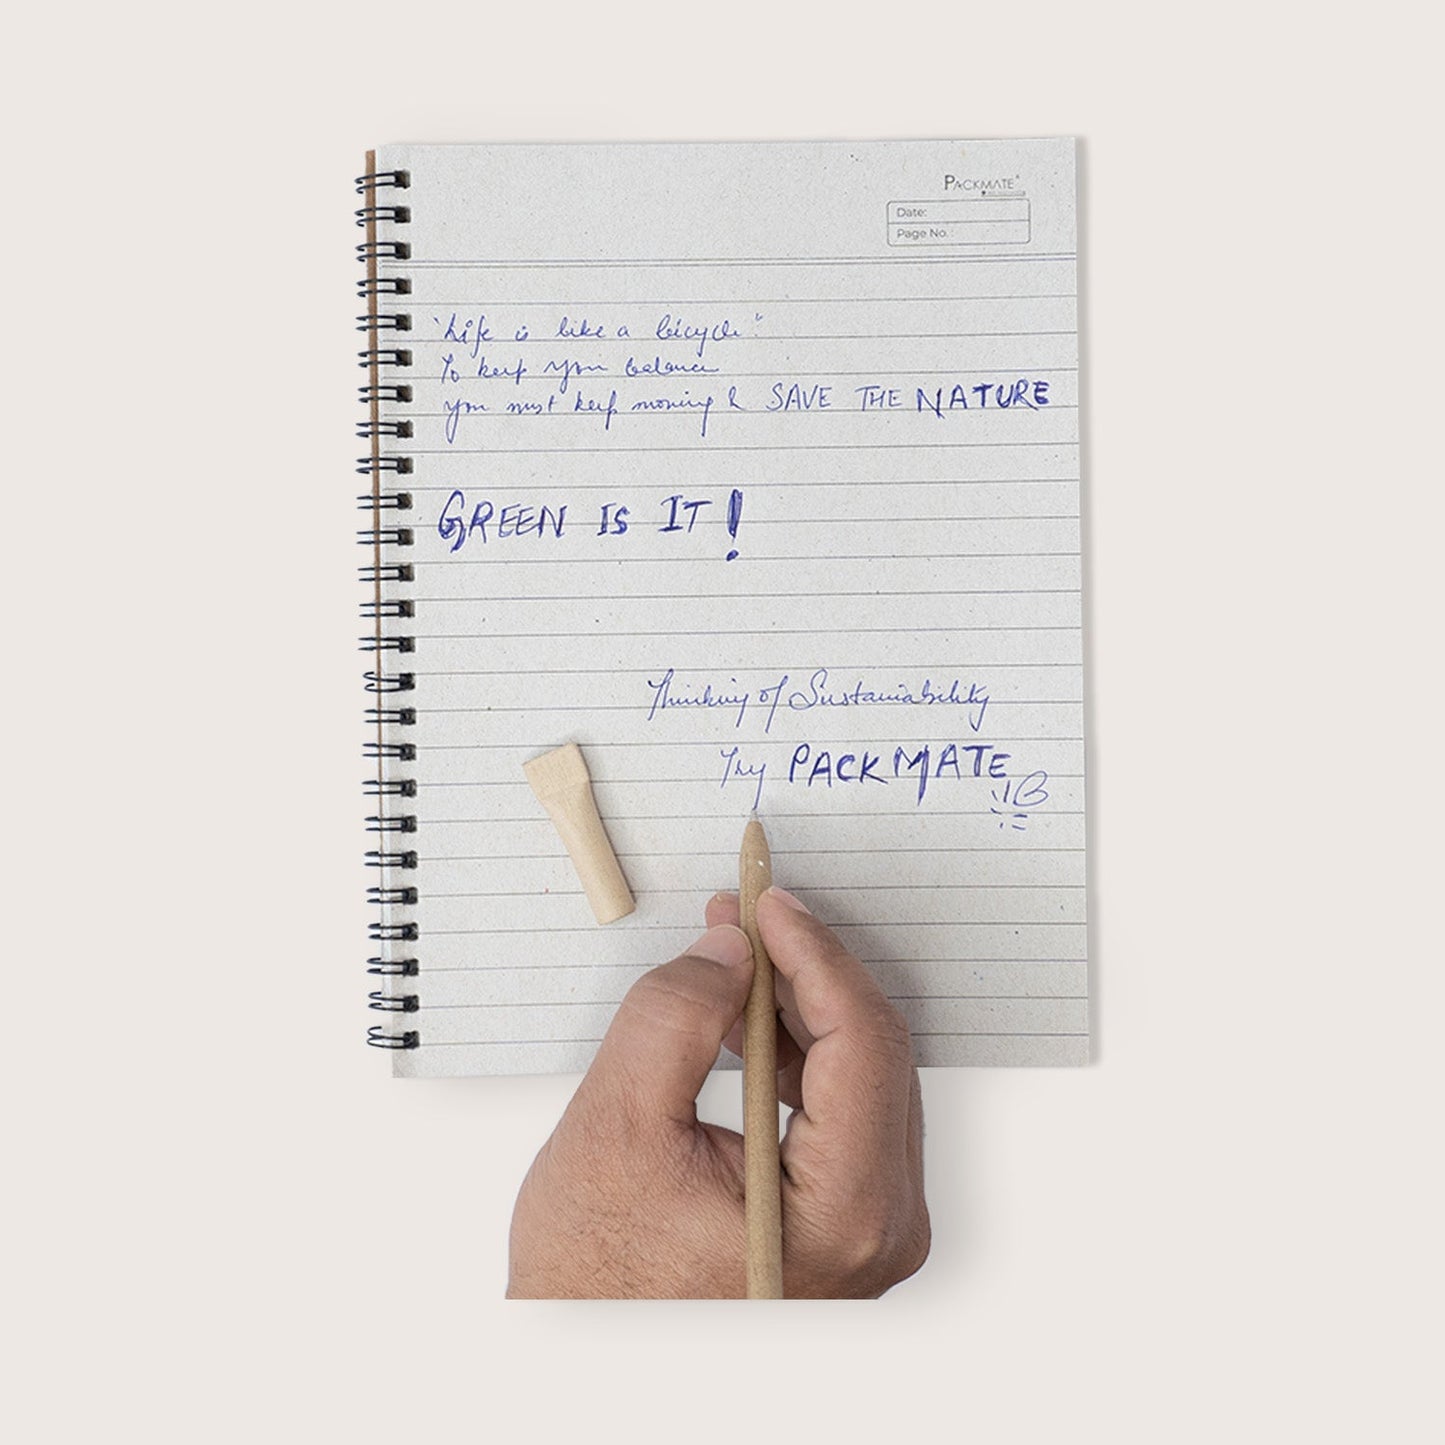 PACKMATE
Date:
Page No. :
"Life is like a bicycle".
To keep your balance
you must keep moving & SAVE THE NATURE
GREEN IS IT!
Thinking of Sustainability
Try PACKMATE